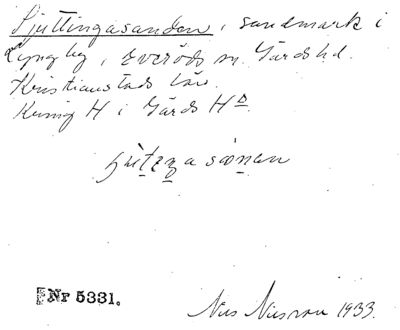 Sjuttingasanden, sandmark i
Lyngby, Everöds sn. Gärds hd.
Kristianstads län.
Kuing H i Gärds HD.
Nr 5331.
Nils Nilsson 1933.